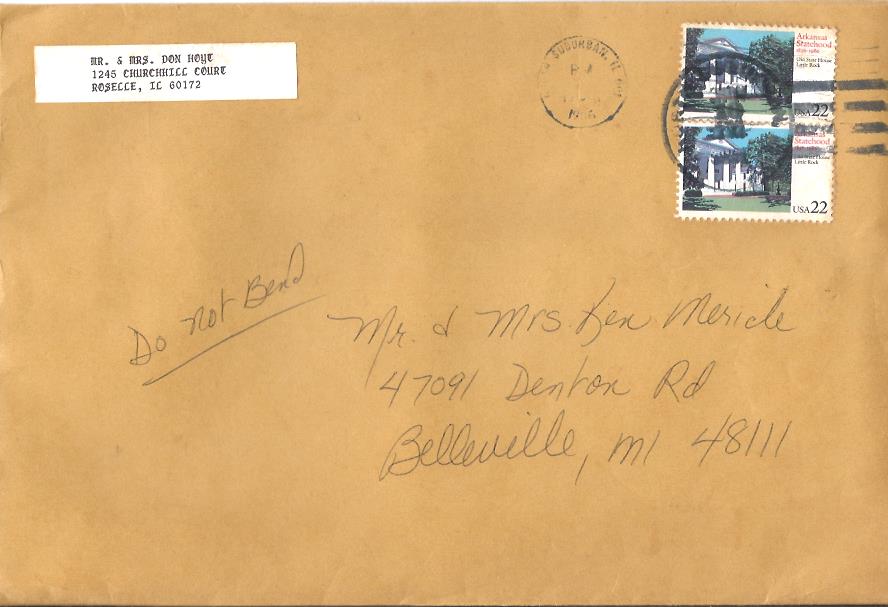 MR. & MRS. DON HOYT
1245 CHURCHHILL COURT
ROSELLE, IL 60172
SUBURBAN, IL
PM
1986
Arkansas
Statehood
1836-1986
Old State House
Little Rock
USA 22
Arkansas
Statehood
1836-1986
Old State House
Little Rock
USA 22
Do Not Bend
Mr. & Mrs. Ken Mericle
47091 Denton Rd
Belleville, MI 48111